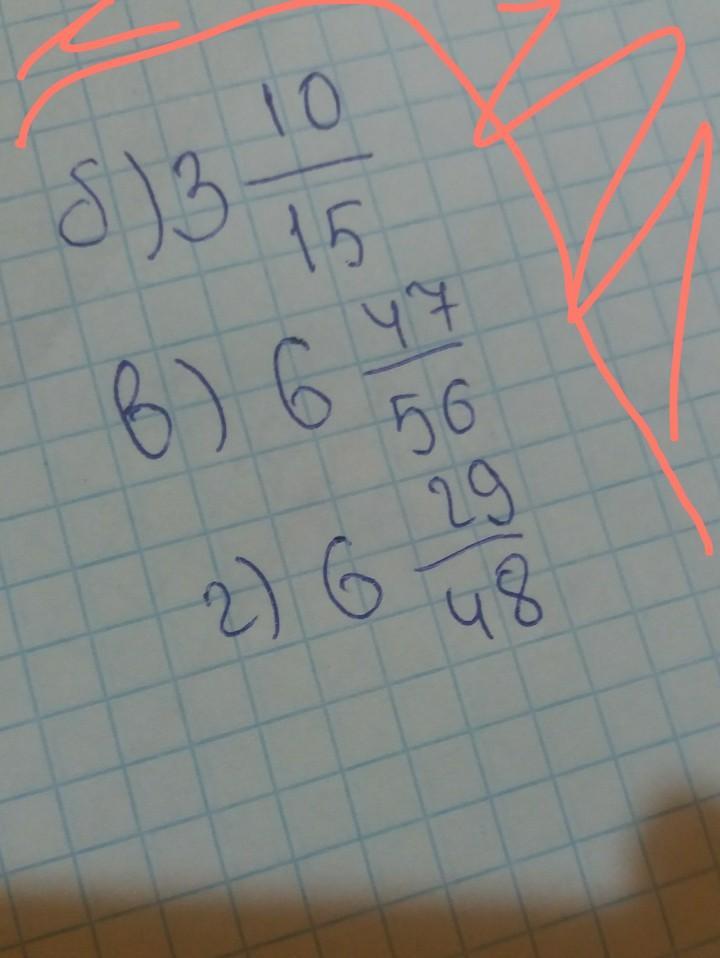 б) 3 10/15
в) 6 47/56
г) 6 29/48